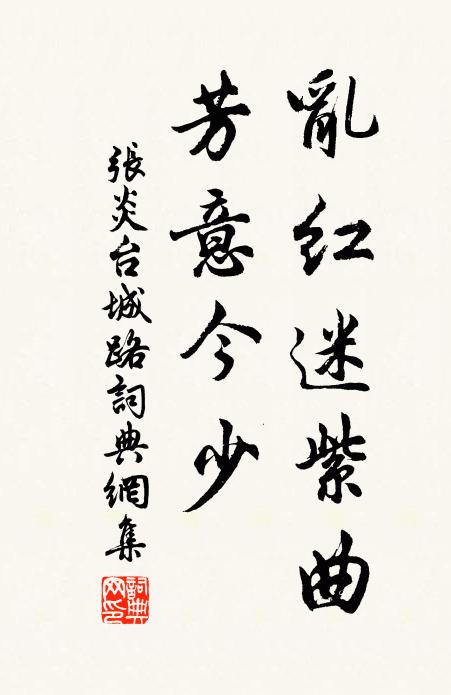 亂红迷紫曲
芳意今少
張炎台城路詞典網集
詞典網印